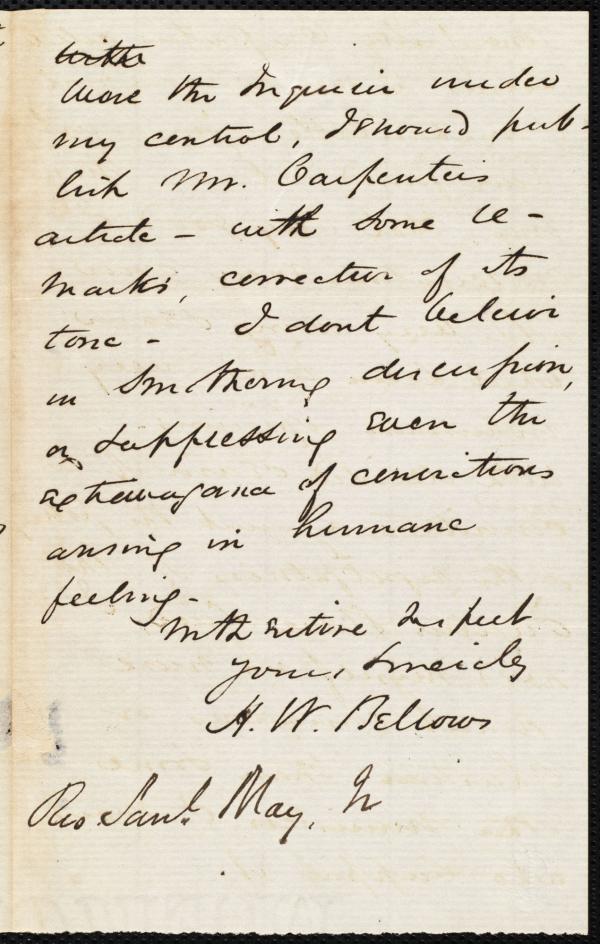 Were the Inquirer under
my control, I should pub-
lish Mr. Carpenters
article - with some re-
marks, corrective of its
tone - I dont believe
in smothering discussion,
or suppressing even the
extravagance of convictions
arising in humane
feeling -
With entire respect
Yours, sincerely
H. W. Bellows
Rev. Saml. May, Jr